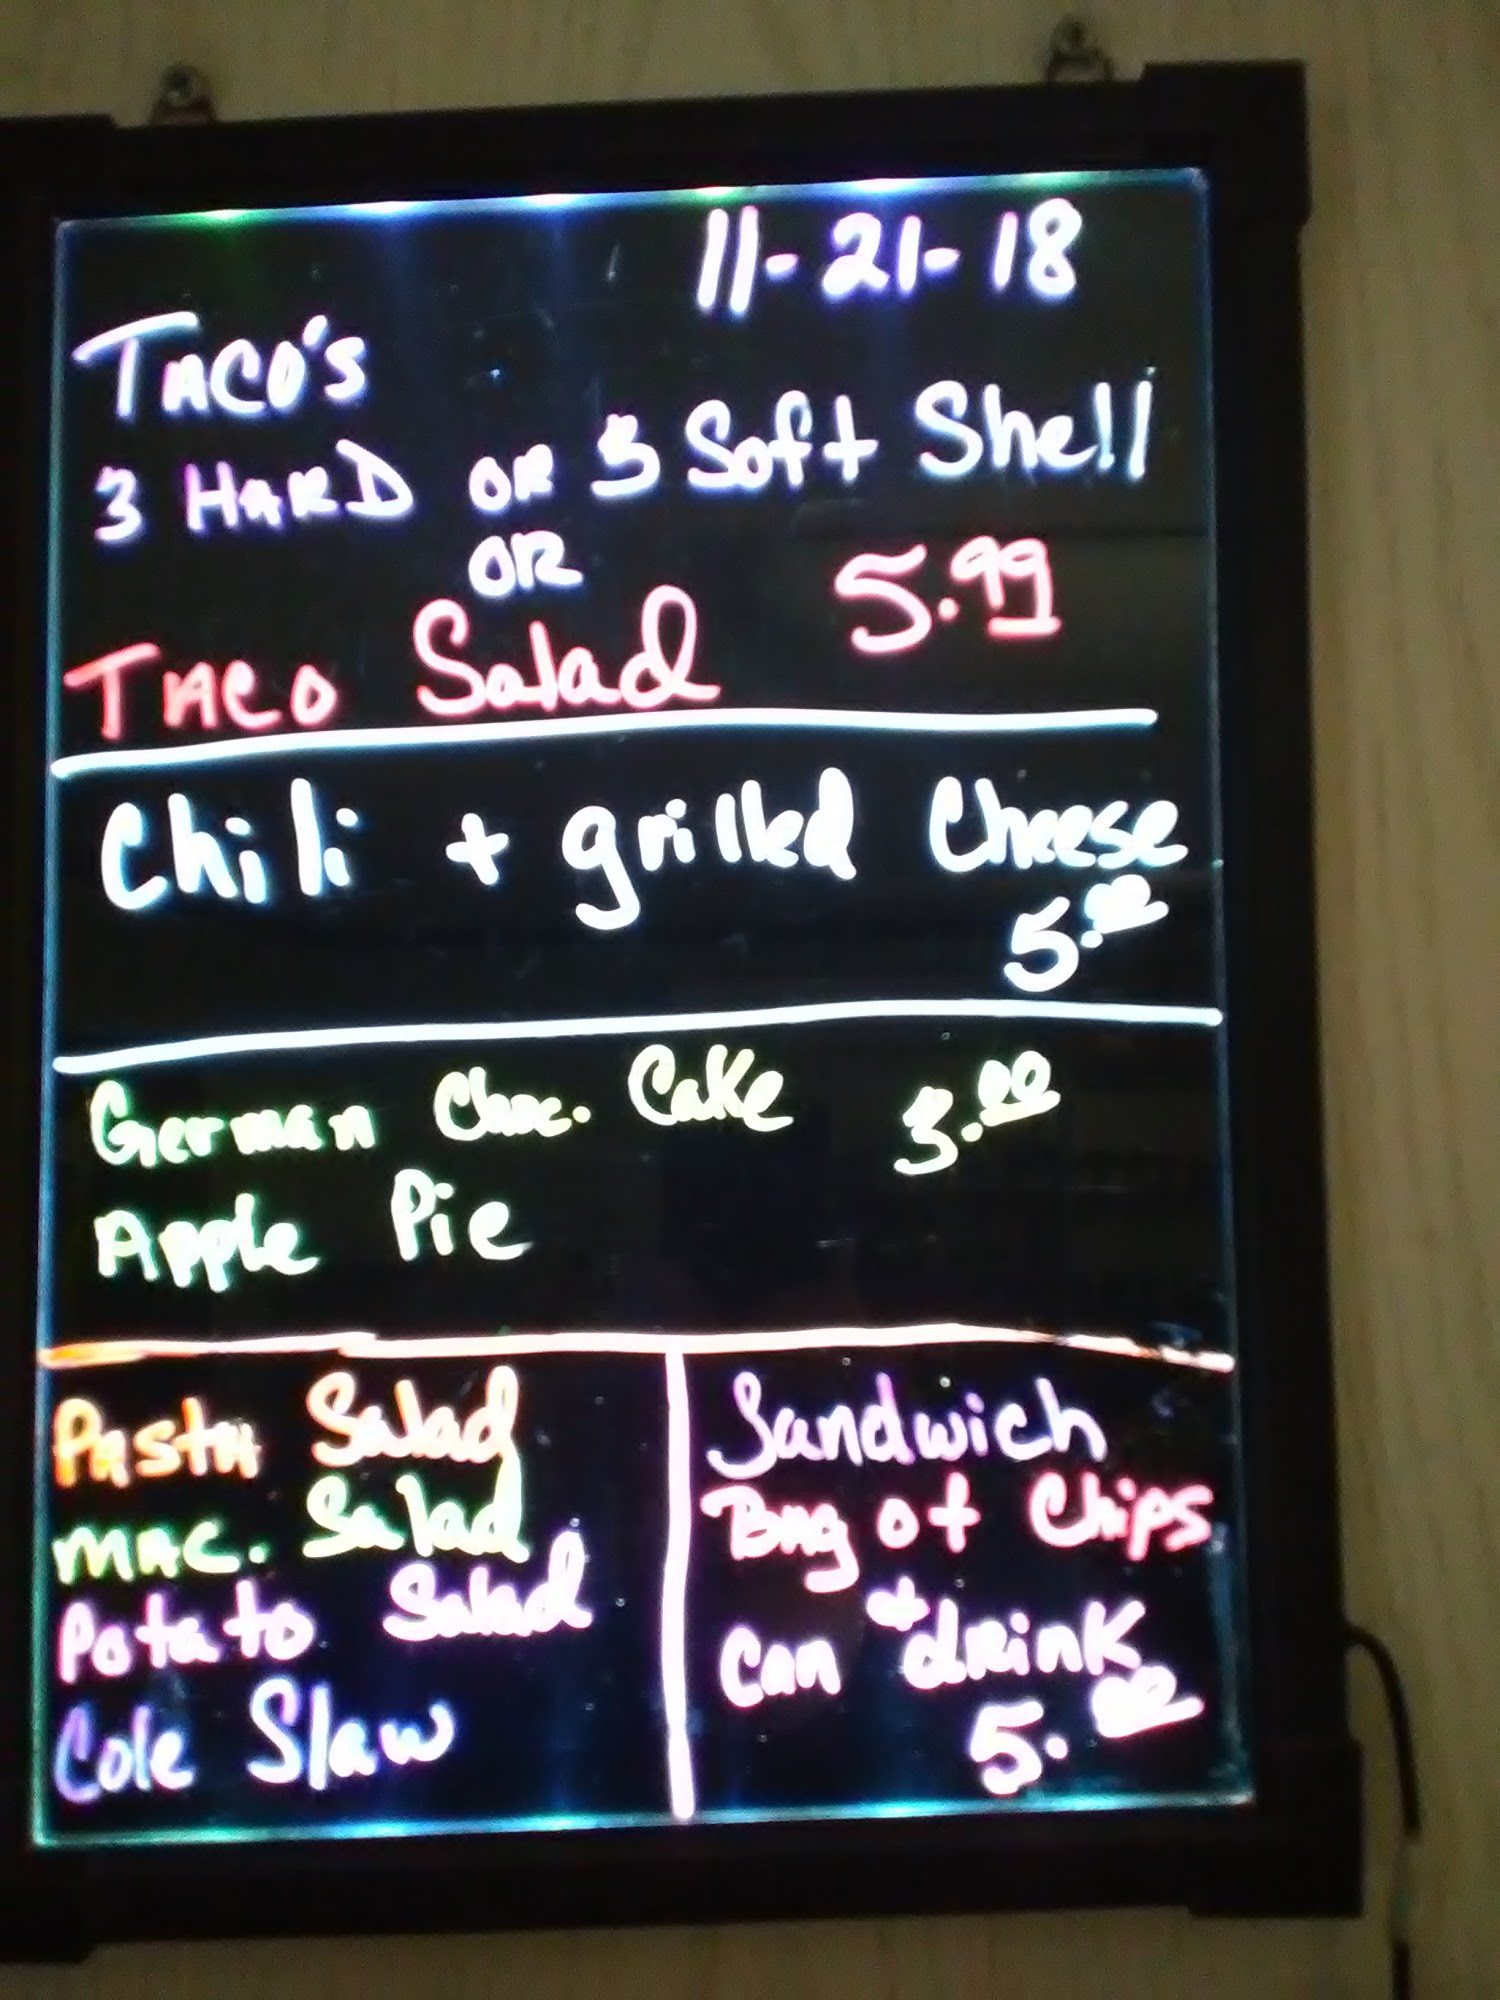 11-21-18
TACO's
3 HARD OR 3 Soft Shell
OR
5.99
TACO Salad
Chili + grilled Cheese
5.00
German Choc. Cake 3.00
Apple Pie
PASTA Salad
MAC. Salad
Potato Salad
Cole Slaw
Sandwich
BAG of Chips
+
Can drink
5.00